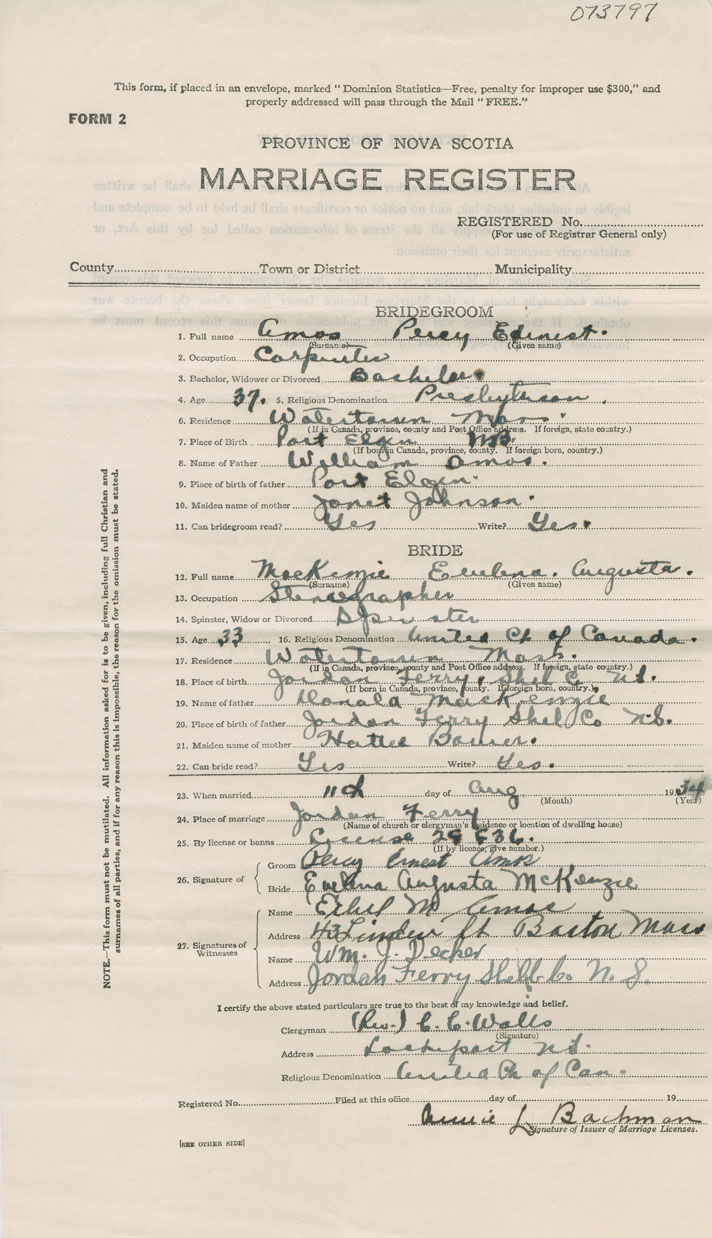 073797
This form, if placed in an envelope, marked "Dominion Statistics—Free, penalty for improper use $300," and
properly addressed will pass through the Mail "FREE."
FORM 2
PROVINCE OF NOVA SCOTIA
MARRIAGE REGISTER
REGISTERED No.
(For use of Registrar General only)
County Town or District Municipality
BRIDEGROOM
1. Full name Amos Percy Ednest.
(Surname) (Given name)
2. Occupation Carpenter
3. Bachelor, Widower or Divorced Bachelor
4. Age 37. 5. Religious Denomination Presbyterian.
6. Residence Watertown Mass.
(If in Canada, province, county and Post Office address. If foreign, state country.)
7. Place of Birth Port Elgin
(If born in Canada, province, county. If foreign born, country.)
8. Name of Father William Amos.
9. Place of birth of father Port Elgin.
10. Maiden name of mother Janet Johnson.
11. Can bridegroom read? Yes Write? Yes.
BRIDE
12. Full name MacKenzie Evelena. Augusta.
(Surname) (Given name)
13. Occupation Stenographer
14. Spinster, Widow or Divorced Spinster
15. Age 33 16. Religious Denomination United Ch of Canada.
17. Residence Watertown Mass.
(If in Canada, province, county and Post Office address. If foreign, state country.)
18. Place of birth Jordan Ferry, Shel Co N.S.
(If born in Canada, province, county. If foreign born, country.)
19. Name of father Donald MacKenzie
20. Place of birth of father Jordan Ferry Shel Co N.S.
21. Maiden name of mother Hattie
22. Can bride read? Yes Write? Yes.
23. When married 11th day of Aug 1934
(Month) (Year)
24. Place of marriage Jordan Ferry
(Name of church or clergyman's residence or location of dwelling house)
25. By license or banns License 28836.
(If by licence, give number.)
26. Signature of
Groom Percy Ernest Amos
Bride Evelena Augusta McKenzie
27. Signatures of Witnesses
Name Ethel M Amos
Address 43 Linden St Boston Mass
Name Wm. J. Decker
Address Jordan Ferry Shelb. Co. N. S.
I certify the above stated particulars are true to the best of my knowledge and belief.
Clergyman (Rev.) C. C. Walls
(Signature)
Address Lockeport N.S.
Religious Denomination United Ch of Can.
Registered No. Filed at this office day of 19
Annie L Bachman
Signature of Issuer of Marriage Licenses.
[SEE OTHER SIDE]
NOTE.—This form must not be mutilated. All information asked for is to be given, including full Christian and
surnames of all parties, and if for any reason this is impossible, the reason for the omission must be stated.